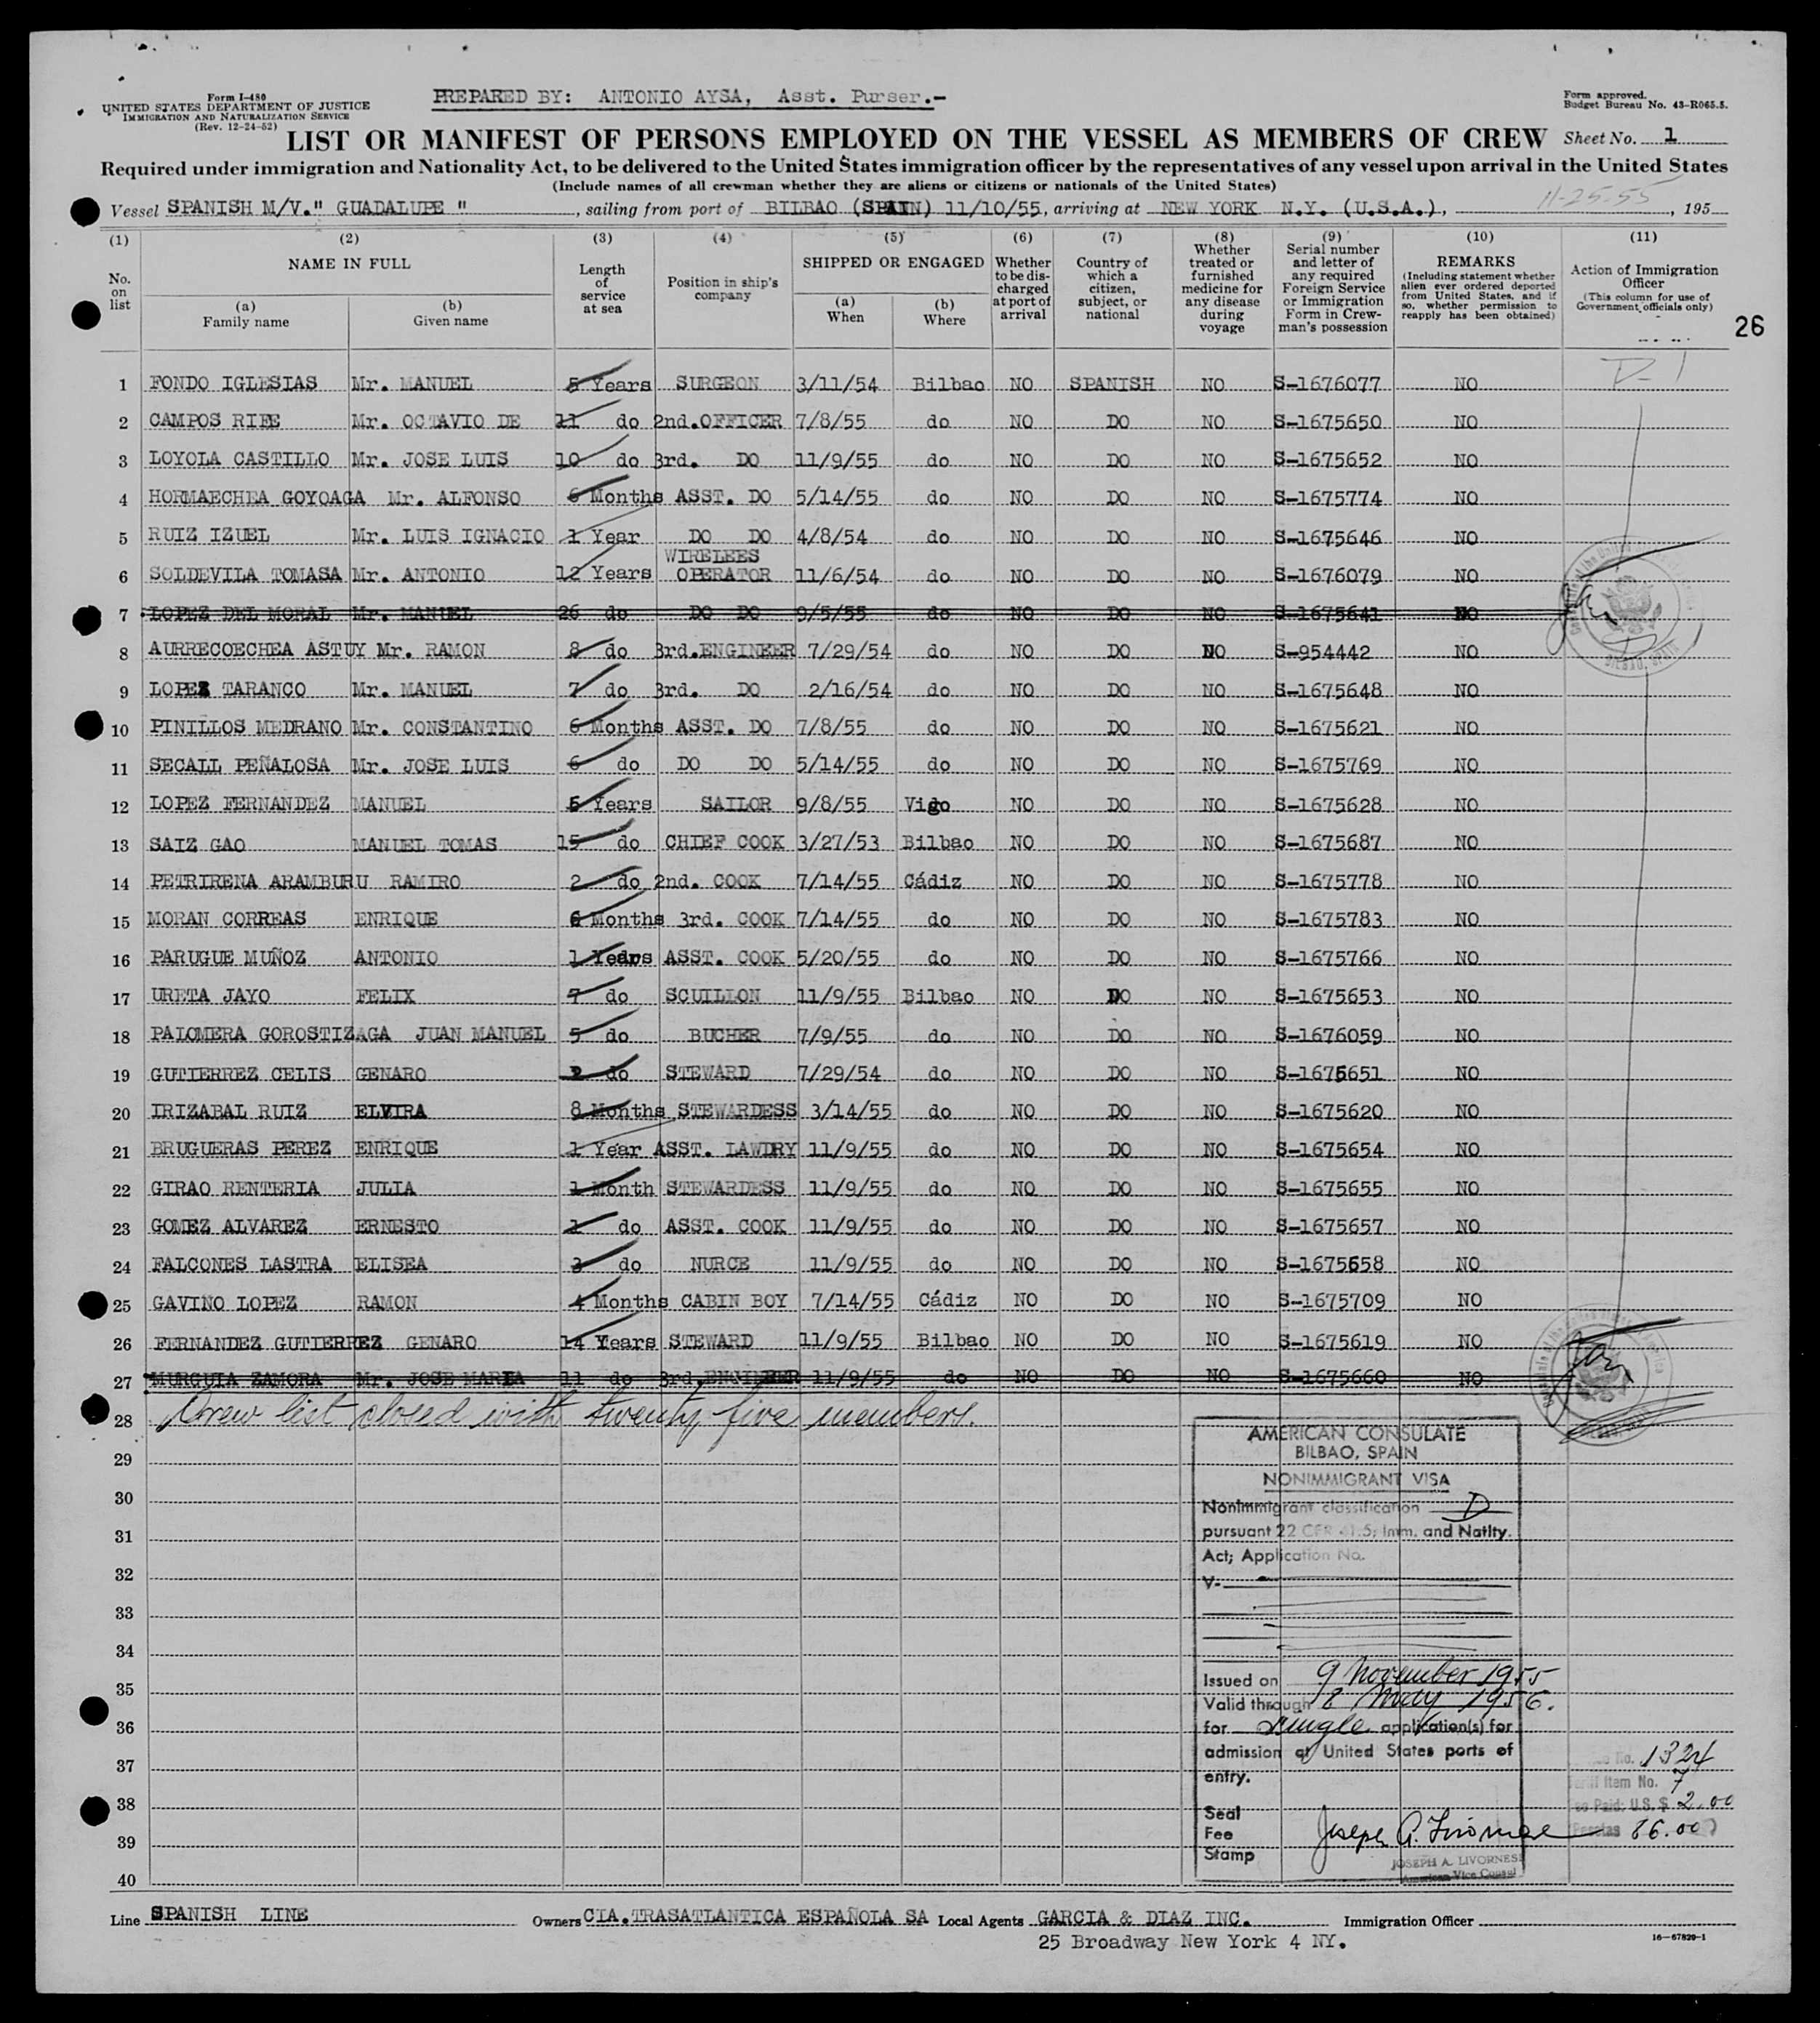 Form I-480
UNITED STATES DEPARTMENT OF JUSTICE
IMMIGRATION AND NATURALIZATION SERVICE
(Rev. 12-24-52)
PREPARED BY: ANTONIO AYSA, Asst. Purser.-
Form approved.
Budget Bureau No. 43-R065.5.
LIST OR MANIFEST OF PERSONS EMPLOYED ON THE VESSEL AS MEMBERS OF CREW Sheet No. 1
Required under immigration and Nationality Act, to be delivered to the United States immigration officer by the representatives of any vessel upon arrival in the United States
(Include names of all crewman whether they are aliens or citizens or nationals of the United States)
Vessel SPANISH M/V." GUADALUPE ", sailing from port of BILBAO (SPAIN) 11/10/55, arriving at NEW YORK N.Y. (U.S.A.), 11-25-55, 195
(1) No. on list
(2) NAME IN FULL
(a) Family name
(b) Given name
(3) Length of service at sea
(4) Position in ship's company
(5) SHIPPED OR ENGAGED
(a) When
(b) Where
(6) Whether to be discharged at port of arrival
(7) Country of which a citizen, subject, or national
(8) Whether treated or furnished medicine for any disease during voyage
(9) Serial number and letter of any required Foreign Service or Immigration Form in Crewman's possession
(10) REMARKS (Including statement whether alien ever ordered deported from United States, and if so, whether permission to reapply has been obtained)
(11) Action of Immigration Officer (This column for use of Government officials only)
26
1 FONDO IGLESIAS Mr. MANUEL 5 Years SURGEON 3/11/54 Bilbao NO SPANISH NO S-1676077 NO D-1
2 CAMPOS RIFE Mr. OCTAVIO DE 11 do 2nd.OFFICER 7/8/55 do NO DO NO S-1675650 NO
3 LOYOLA CASTILLO Mr. JOSE LUIS 10 do 3rd. DO 11/9/55 do NO DO NO S-1675652 NO
4 HORMAECHEA GOYOAGA Mr. ALFONSO 6 Months ASST. DO 5/14/55 do NO DO NO S-1675774 NO
5 RUIZ IZUEL Mr. LUIS IGNACIO 1 Year DO DO 4/8/54 do NO DO NO S-1675646 NO
6 SOLDEVILA TOMASA Mr. ANTONIO 12 Years WIRELEES OPERATOR 11/6/54 do NO DO NO S-1676079 NO
7 LOPEZ DEL MORAL Mr. MANUEL 26 do DO DO 9/5/55 do NO DO NO S-1675641 NO
8 AURRECOECHEA ASTUY Mr. RAMON 8 do 3rd.ENGINEER 7/29/54 do NO DO NO S-954442 NO
9 LOPEZ TARANCO Mr. MANUEL 7 do 3rd. DO 2/16/54 do NO DO NO S-1675648 NO
10 PINILLOS MEDRANO Mr. CONSTANTINO 6 Months ASST. DO 7/8/55 do NO DO NO S-1675621 NO
11 SECALL PEÑALOSA Mr. JOSE LUIS 6 do DO DO 5/14/55 do NO DO NO S-1675769 NO
12 LOPEZ FERNANDEZ MANUEL 5 Years SAILOR 9/8/55 Vigo NO DO NO S-1675628 NO
13 SAIZ GAO MANUEL TOMAS 15 do CHIEF COOK 3/27/53 Bilbao NO DO NO S-1675687 NO
14 PETRIRENA ARAMBURU RAMIRO 2 do 2nd. COOK 7/14/55 Cádiz NO DO NO S-1675778 NO
15 MORAN CORREAS ENRIQUE 6 Months 3rd. COOK 7/14/55 do NO DO NO S-1675783 NO
16 PARUGUE MUÑOZ ANTONIO 1 Years ASST. COOK 5/20/55 do NO DO NO S-1675766 NO
17 URETA JAYO FELIX 7 do SCUILLON 11/9/55 Bilbao NO DO NO S-1675653 NO
18 PALOMERA GOROSTIZAGA JUAN MANUEL 5 do BUCHER 7/9/55 do NO DO NO S-1676059 NO
19 GUTIERREZ CELIS GENARO 2 do STEWARD 7/29/54 do NO DO NO S-1675651 NO
20 IRIZABAL RUIZ ELVIRA 8 Months STEWARDESS 3/14/55 do NO DO NO S-1675620 NO
21 BRUGUERAS PEREZ ENRIQUE 1 Year ASST. LAWDRY 11/9/55 do NO DO NO S-1675654 NO
22 GIRAO RENTERIA JULIA 1 Month STEWARDESS 11/9/55 do NO DO NO S-1675655 NO
23 GOMEZ ALVAREZ ERNESTO 1 do ASST. COOK 11/9/55 do NO DO NO S-1675657 NO
24 FALCONES LASTRA ELISEA do NURCE 11/9/55 do NO DO NO S-1675658 NO
25 GAVIÑO LOPEZ RAMON 4 Months CABIN BOY 7/14/55 Cádiz NO DO NO S-1675709 NO
26 FERNANDEZ GUTIERREZ GENARO 14 Years STEWARD 11/9/55 Bilbao NO DO NO S-1675619 NO
27 MURGUIA ZAMORA Mr. JOSE MARIA 11 do 3rd.ENGINEER 11/9/55 do NO DO NO S-1675660 NO
28 Crew list closed with twenty five members.
29
30
31
32
33
34
35
36
37
38
39
40
AMERICAN CONSULATE
BILBAO, SPAIN
NONIMMIGRANT VISA
Nonimmigrant classification D
pursuant 22 CFR 41.5; Imm. and Natlty.
Act; Application No.
V-
Issued on 9 November 1955
Valid through 8 May 1956.
for single application(s) for
admission at United States ports of
entry.
Seal
Fee
Stamp
Joseph A. Livornese
JOSEPH A. LIVORNESE
American Vice Consul
No. 1324
Tariff Item No. 7
Fee Paid: U.S. $ 2.00
Pesetas 86.00
Line SPANISH LINE Owners CIA. TRASATLANTICA ESPAÑOLA SA Local Agents GARCIA & DIAZ INC. Immigration Officer
25 Broadway New York 4 NY.
16-67829-1